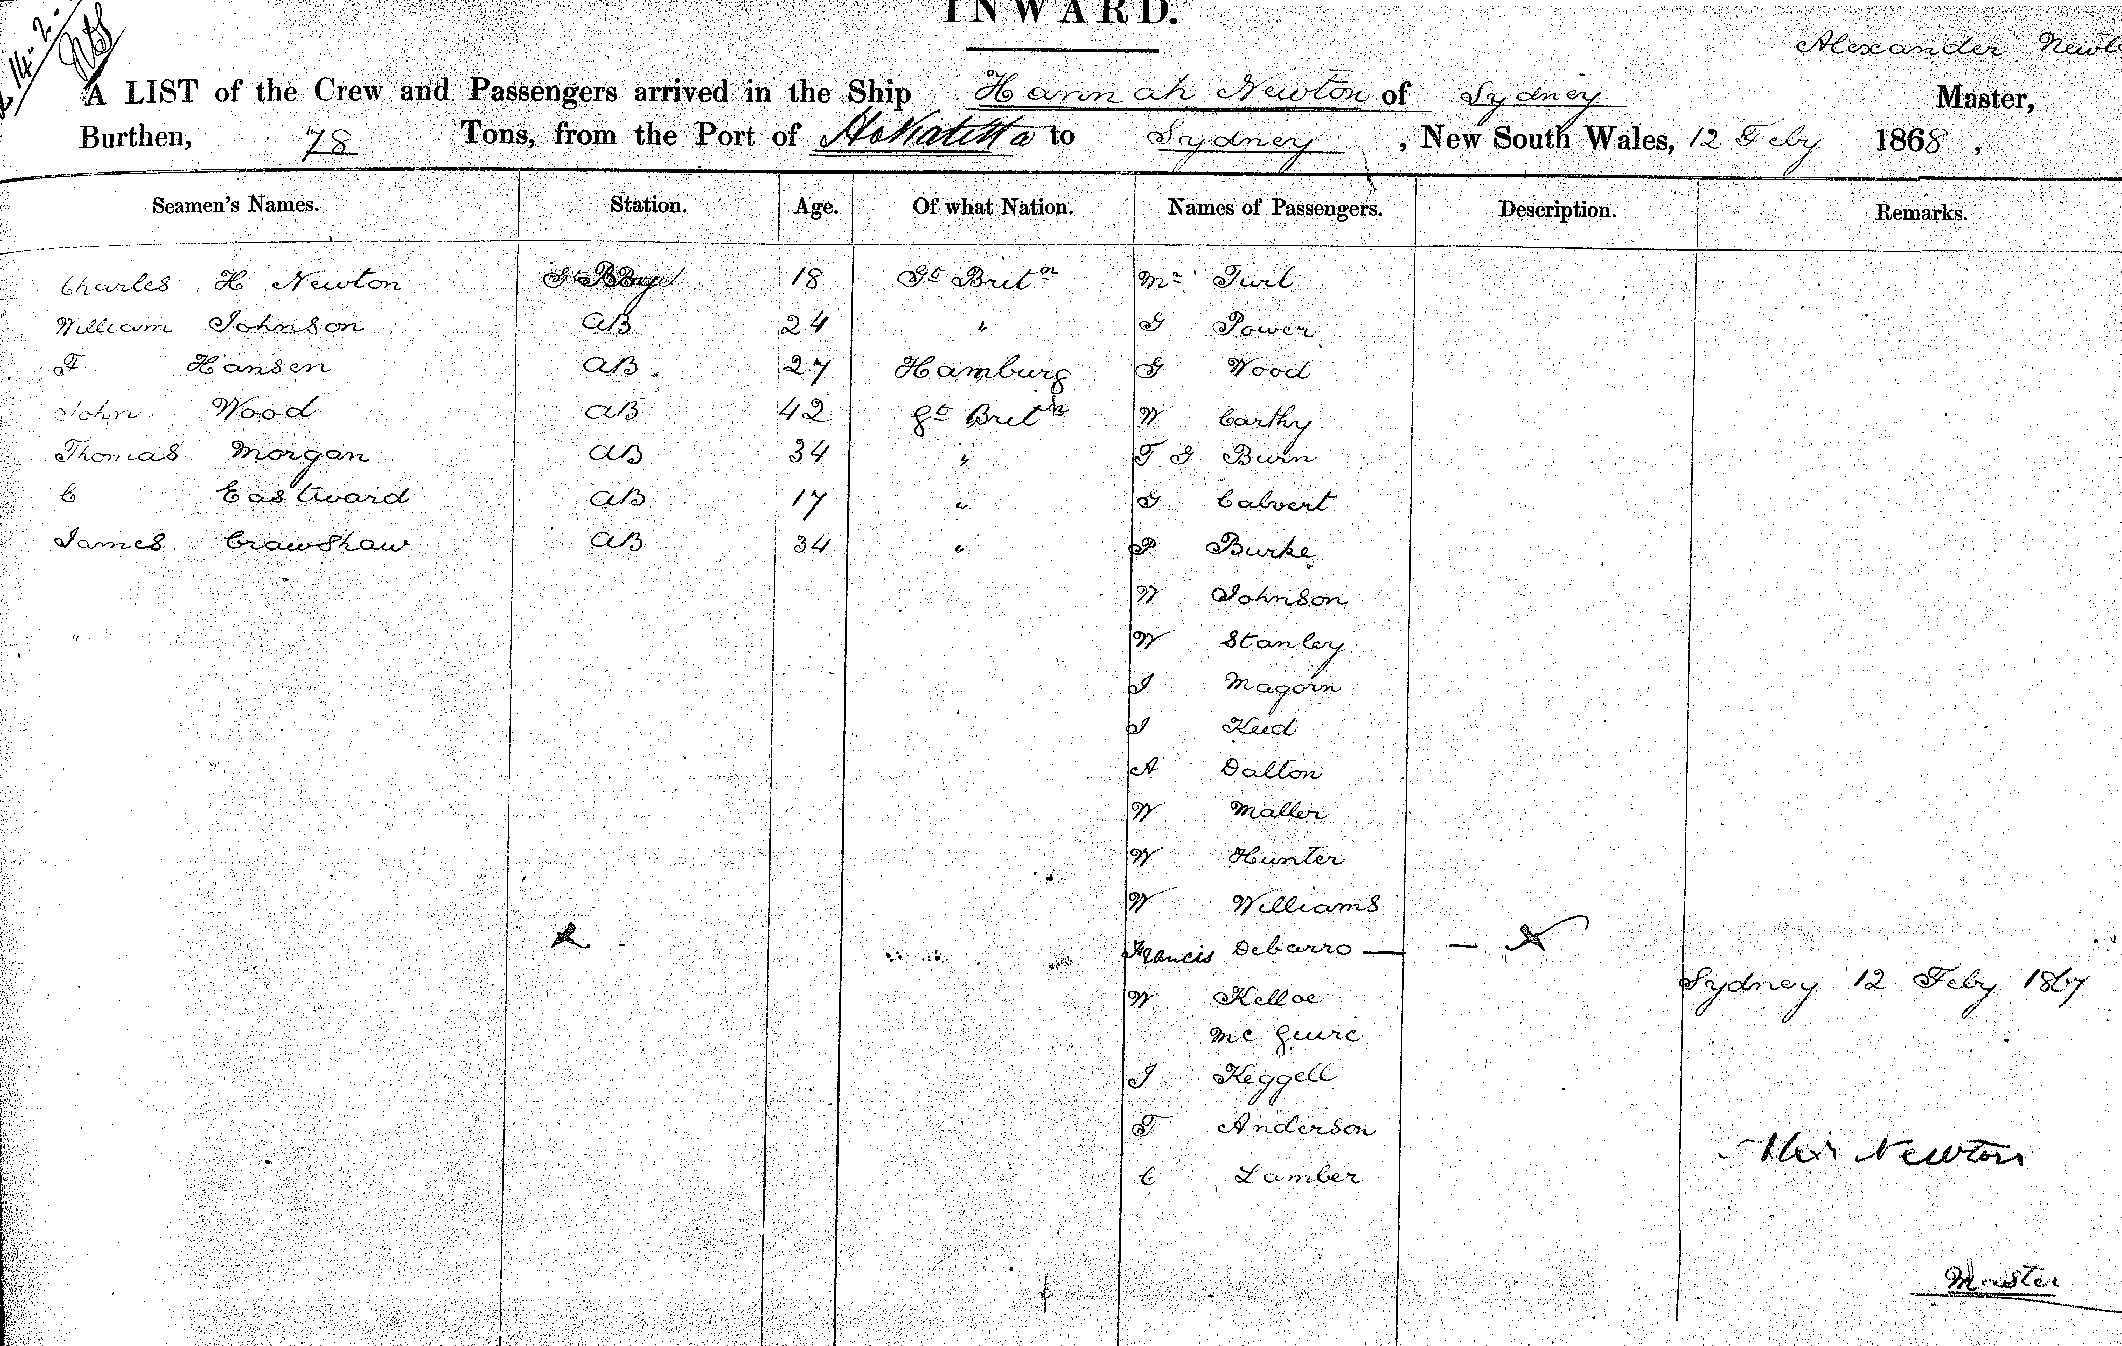 INWARD.
14-2-
Alexander Newto
A LIST of the Crew and Passengers arrived in the Ship Hannah Newton of Sydney Master,
Burthen, 78 Tons, from the Port of Hokatitta to Sydney, New South Wales, 12 Feby 1868.
Seamen's Names. Station. Age. Of what Nation. Names of Passengers. Description. Remarks.
Charles H Newton 18 Gt Britn Mr Turl
William Johnson AB 24 " G Power
F Hansen AB. 27 Hamburg G Wood
John Wood AB 42 gt Britn W Carthy
Thomas Morgan AB 34 " T G Burn
C Eastward AB 17 " G Calvert
James Crawshaw AB 34 " P Burke
W Johnson
W Stanley
J Magorn
J Keid
A Dalton
W Maller
W Hunter
W Williams
Francis Debarro — —
W Kelloe
Sydney 12 Feby 1867
Mc Guire
J Keggell
T Anderson
Alexr Newton
C Lamber
Master